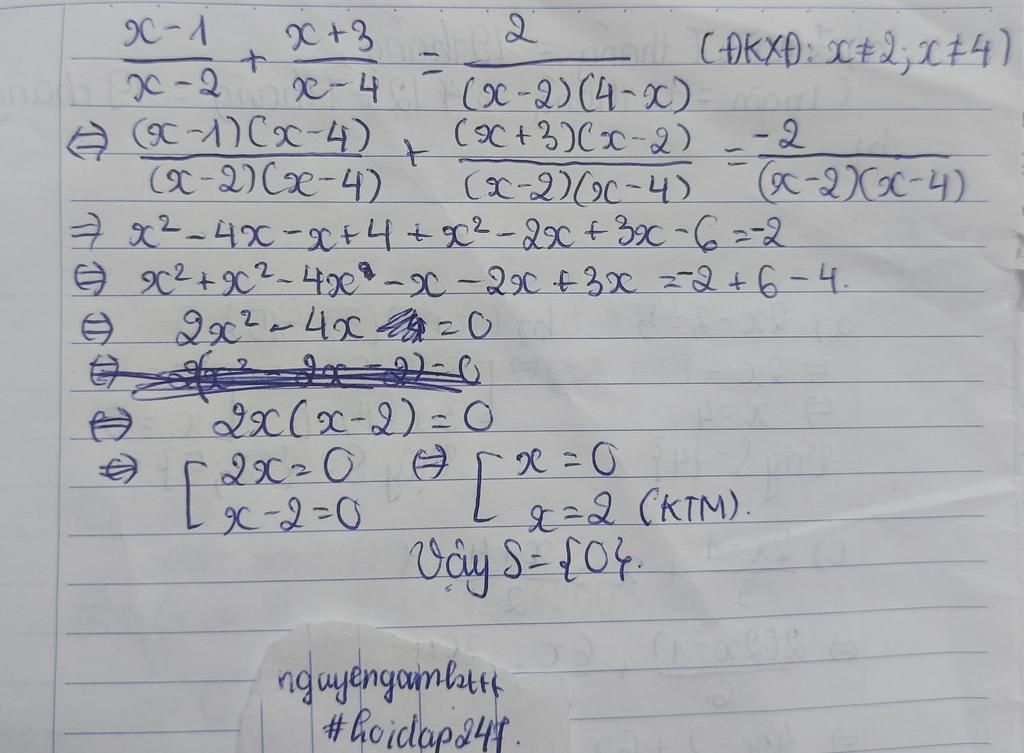 x-1/x-2 + x+3/x-4 = 2/(x-2)(4-x) (ĐKXĐ: x≠2; x≠4)
⇔ (x-1)(x-4)/(x-2)(x-4) + (x+3)(x-2)/(x-2)(x-4) = -2/(x-2)(x-4)
⇒ x² - 4x - x + 4 + x² - 2x + 3x - 6 = -2
⇔ x² + x² - 4x - x - 2x + 3x = -2 + 6 - 4.
⇔ 2x² - 4x = 0
⇔ 2x(x-2) = 0
⇔ [ 2x = 0 ⇔ [ x = 0
x-2 = 0 x = 2 (KTM).
Vậy S = {0}.
#hoidap247.